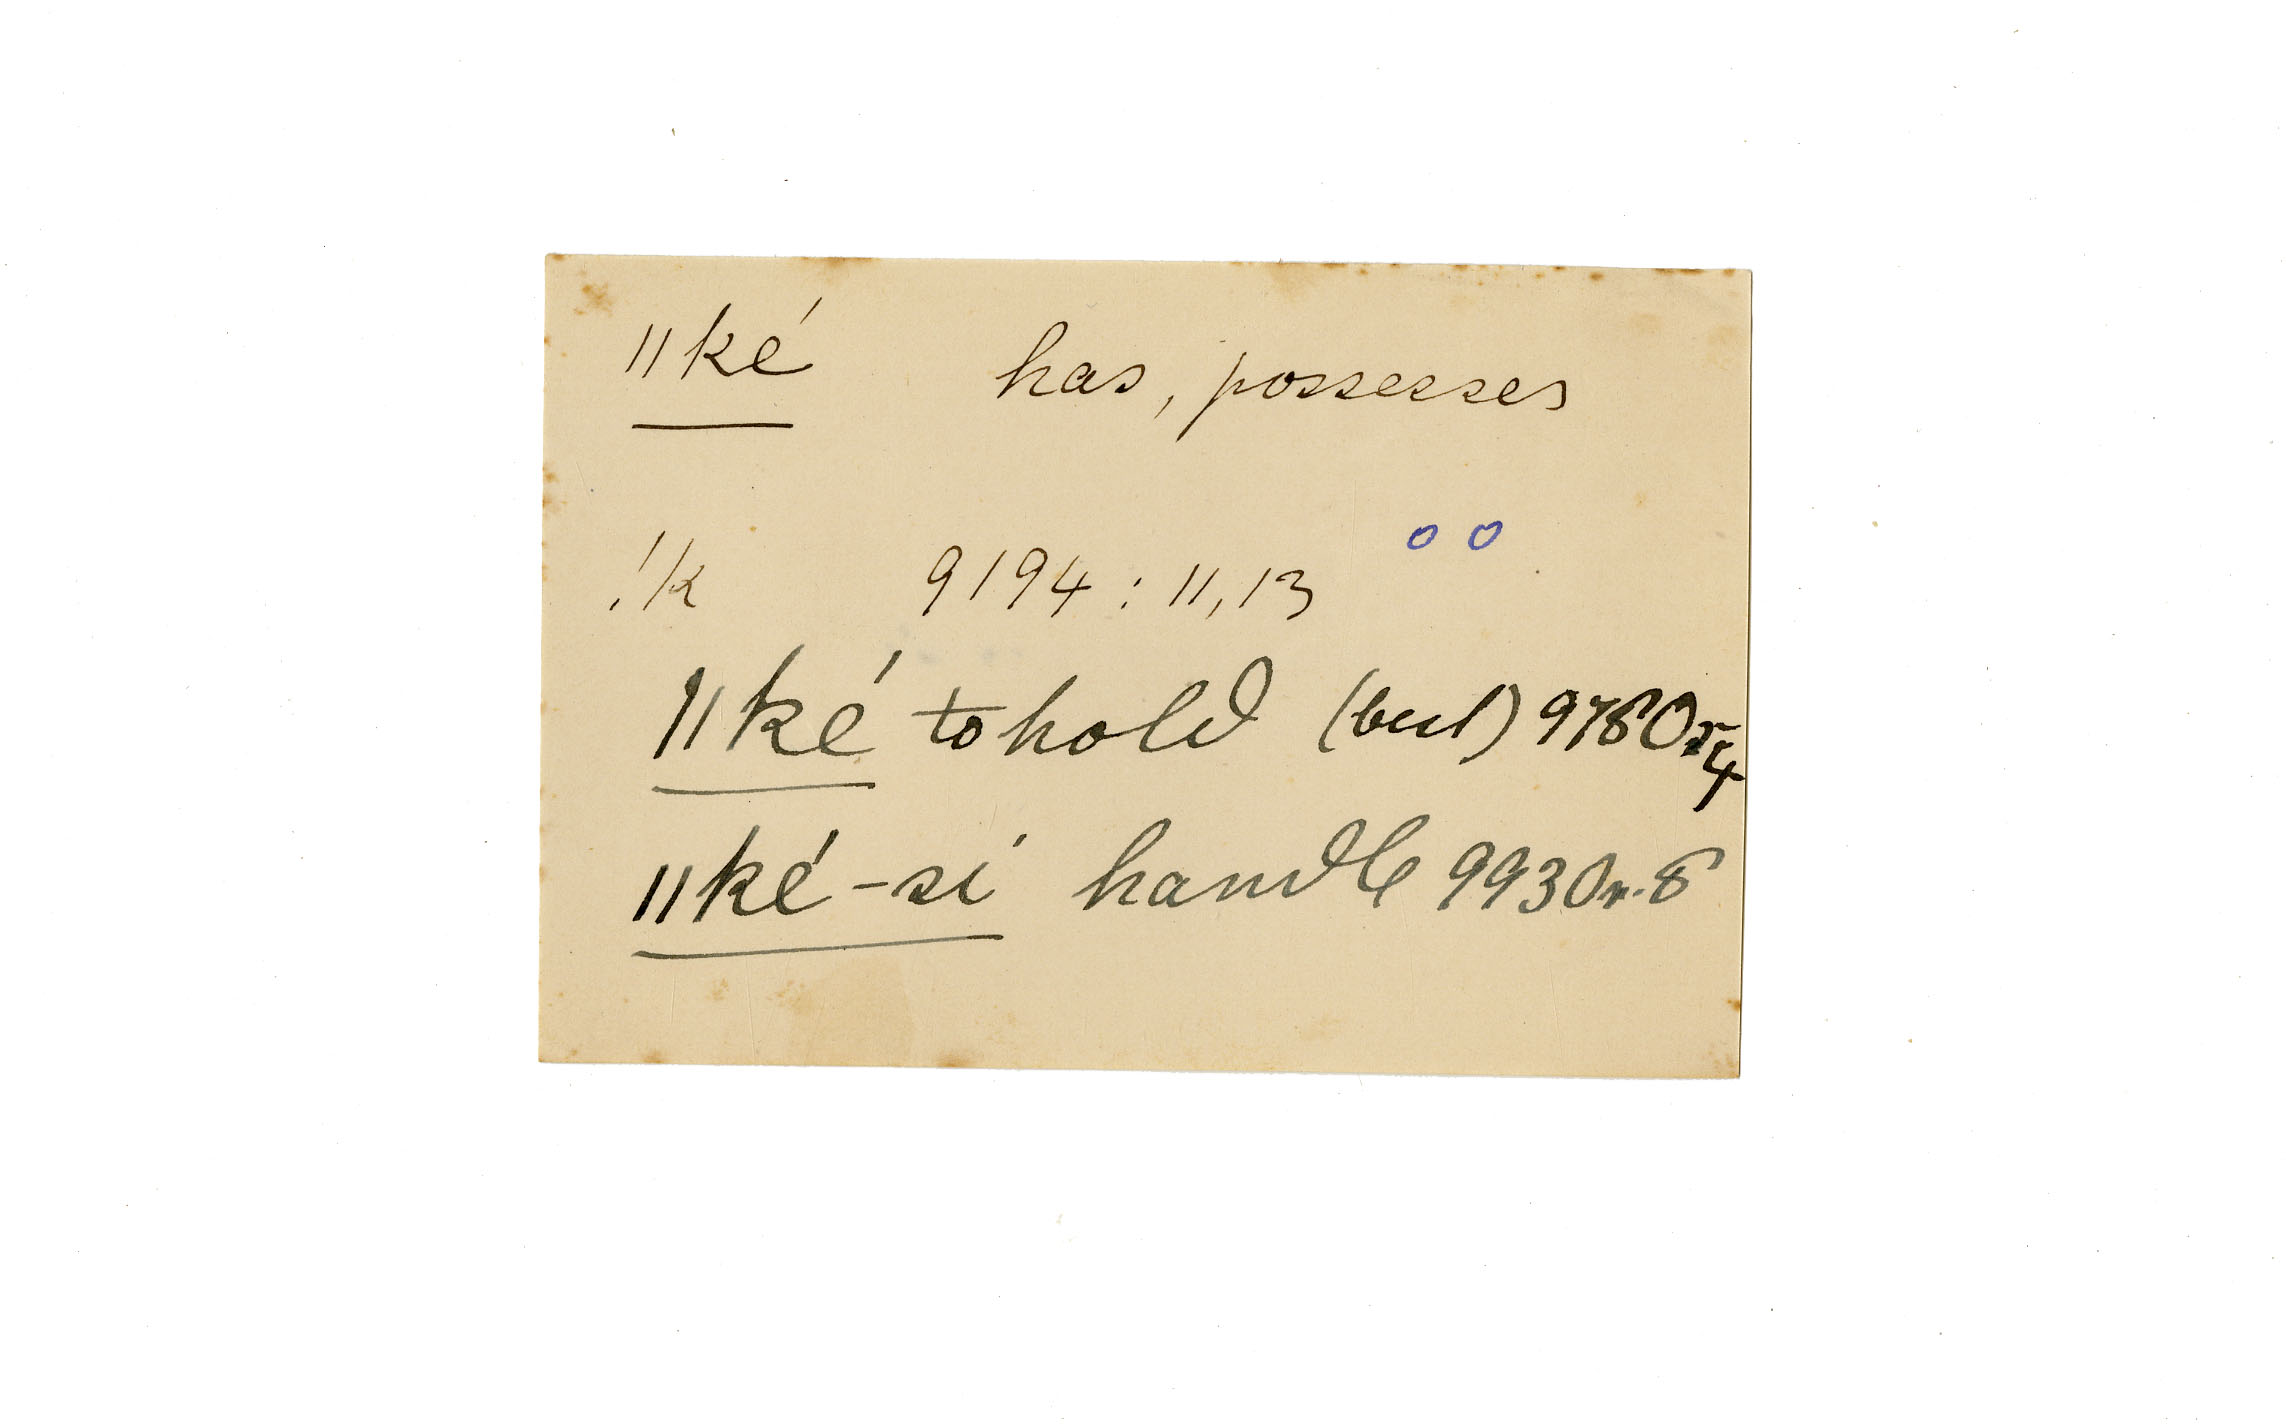 ǁké has, possesses
!k 9194 : 11, 13 o o
ǁké to hold 9780 r 4
ǁké-si handle 9930 r. 8